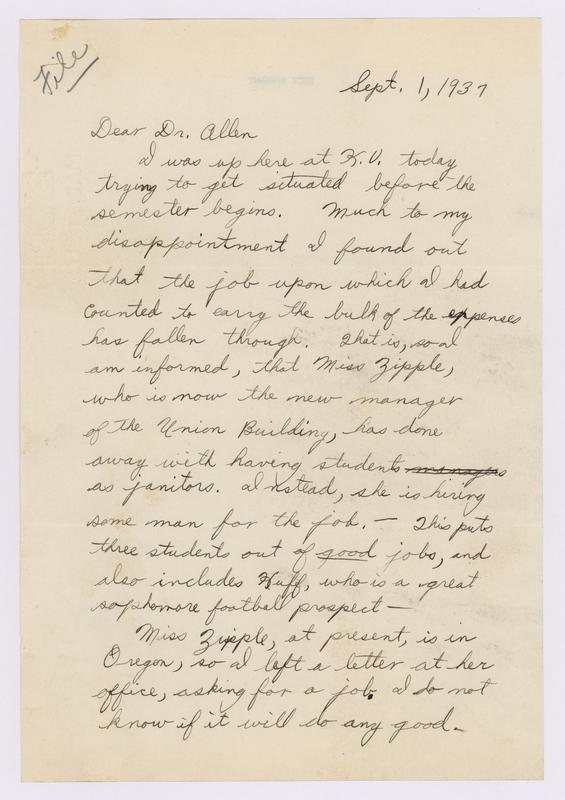 File
Sept. 1, 1937
Dear Dr. Allen
I was up here at K.U. today
trying to get situated before the
semester begins. Much to my
disappointment I found out
that the job upon which I had
counted to carry the bulk of the expenses
has fallen through. That is, so I
am informed, that Miss Zipple,
who is now the new manager
of the Union Building, has done
away with having students managers
as janitors. Instead, she is hiring
some man for the job. — This puts
three students out of good jobs, and
also includes Huff, who is a great
sophomore football prospect —
Miss Zipple, at present, is in
Oregon, so I left a letter at her
office, asking for a job. I do not
know if it will do any good.